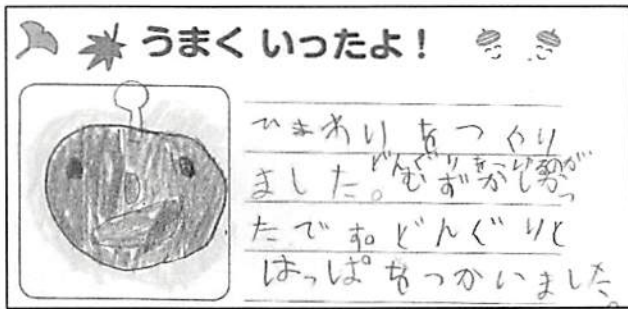 うまく いったよ！
ひまわり をつくり
ました。どんぐりを
むずかしかっ
たです。どんぐりと
はっぱをつかいました。